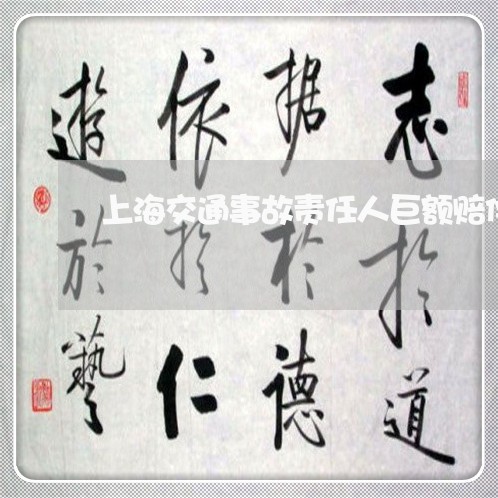 志於道
据於德
依於仁
遊於藝
上海交通事故责任人巨额赔